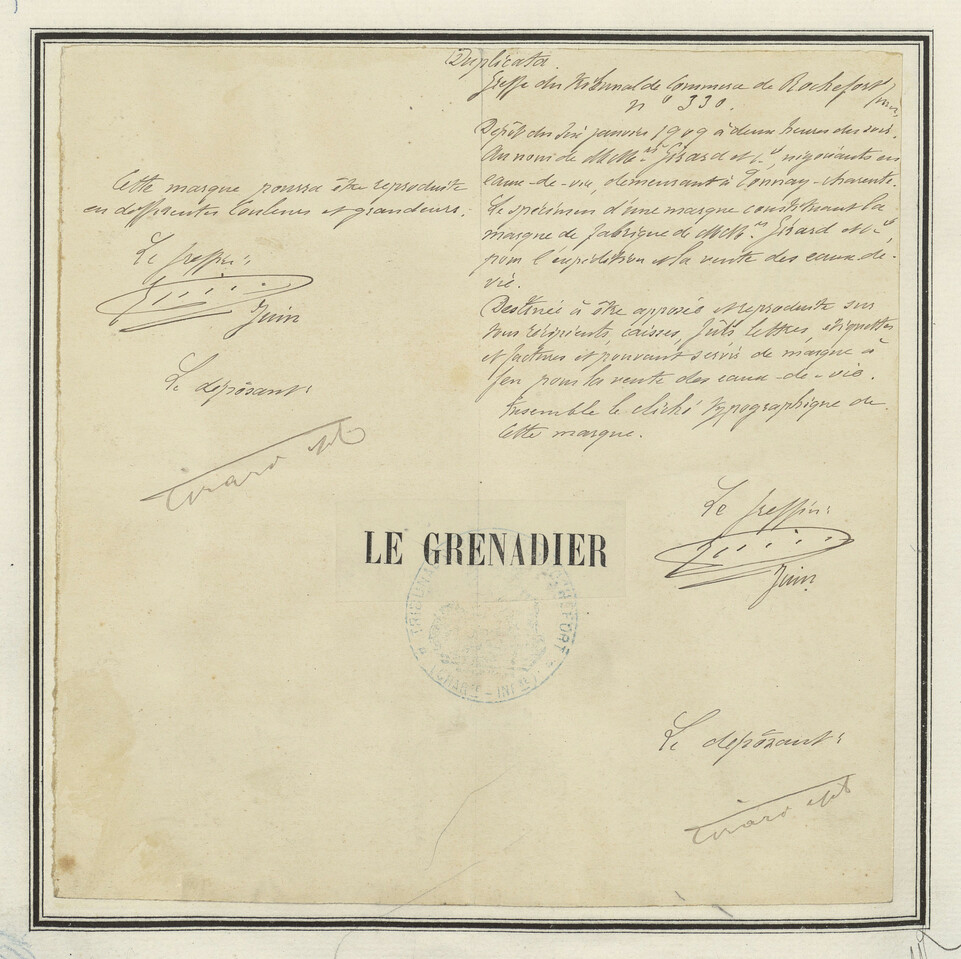 Duplicata
Greffe du Tribunal de Commerce de Rochefort s/mer
n° 330.
Dépôt du six janvier 1909 à deux heures du soir.
Au nom de MM.rs Girard et Cie, négociants en
eaux-de-vie, demeurant à Tonnay-Charente.
Le spécimen d'une marque constituant la
marque de fabrique de MM.rs Girard et Cie
pour l'expédition et la vente des eaux-de-
vie.
Destinée à être apposée et reproduite sur
tous récipients, caisses, fûts, lettres, étiquettes
et factures et pouvant servir de marque à
feu pour la vente des eaux-de-vie.
Ensemble le cliché typographique de
cette marque.
Cette marque pourra être reproduite
en différentes couleurs et grandeurs.
Le greffier:
Juin
Le déposant:
Girard
LE GRENADIER
TRIBUNAL ROCHEFORT
(CHARTE-INFRE)
Le greffier:
Juin
Le déposant:
Girard